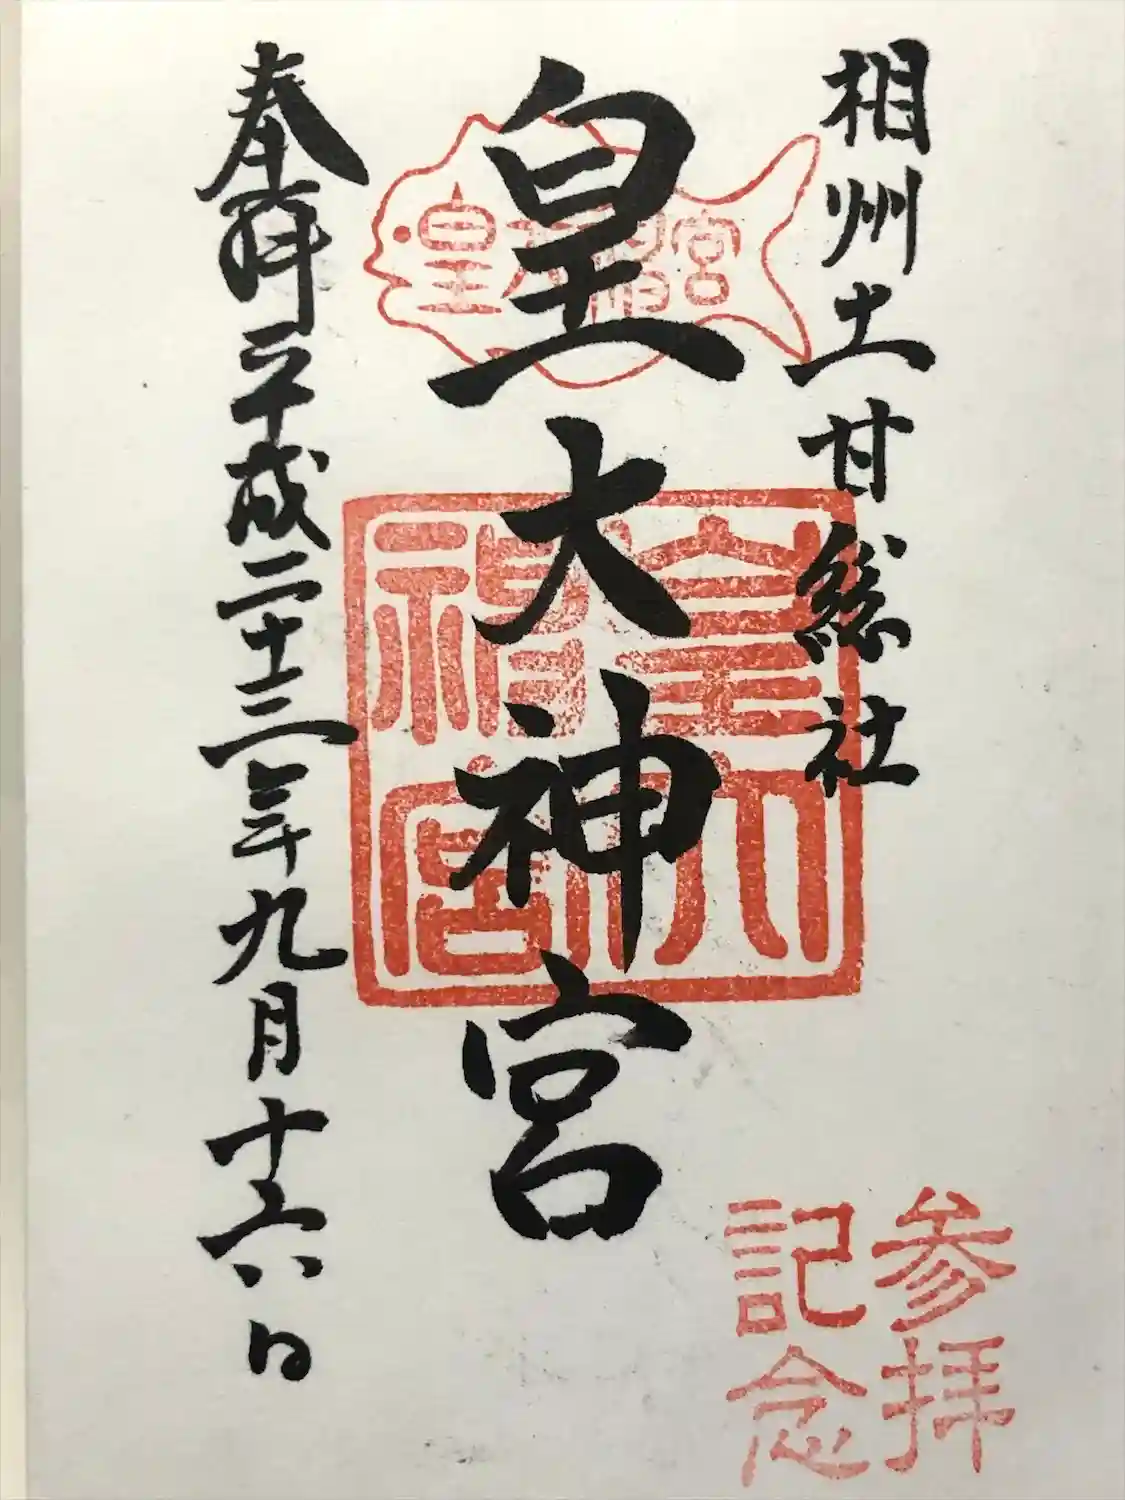 相州土甘総社
皇大神宮
皇大神宮
皇大神宮
奉拝 平成二十三年九月十六日
参拝
記念